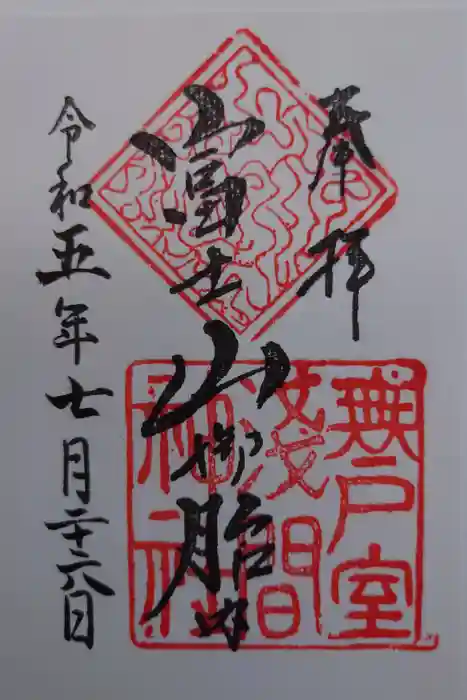 奉拝
富士山御胎内
無戸室
浅間
神社
令和五年七月二十六日